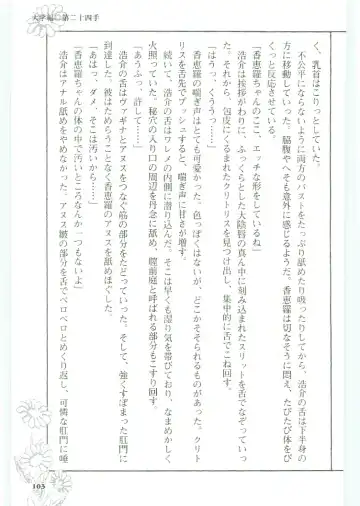 大学編◎第二十四手
く、乳首はこりっとしていた。
不公平にならないように両方のバストを舐めたり吸ったりしてから、浩介の舌は下半身の
方に移動していった。脇腹やへそも意外に感じるようだ。香恵羅は切なそうに悶え、たびたび体をび
くっと反応させている。
「香恵羅ちゃんのここ、エッチな形をしているね」
浩介は挨拶がわりに、ふっくらとした大陰唇の真ん中に刻み込まれたスリットを舌でなぞっていっ
た。それから、包皮にくるまれたクリトリスを見つけ出し、集中的に舌でこね回す。
「はっ、くううっ……」
香恵羅の喘ぎ声はとても可愛かった。色っぽくはないが、どこかそそられるものがあった。クリト
リスを舌先でプッシュすると、喘ぎ声に甘さが増す。
続いて、浩介の舌はワレメの内側に潜り込んだ。そこは早くも湿り気を帯びており、なまめかしく
火照っていた。秘穴の入り口の周辺を丹念に舐め、膣前庭と呼ばれる部分もこすり回す。
「あうふっ、許して……」
浩介の舌はヴァギナとアヌスをつなぐ筋の部分をたどっていった。そして、強くすぼまった肛門に
到達した。彼はためらうことなく香恵羅のアヌスを舐めほぐした。
「あはっ、ダメ、そこは汚いから……」
「香恵羅ちゃんの体の中で汚いところなんか一つもないよ」
浩介はアナル舐めをやめなかった。アヌス皺の部分を舌でペロペロとめくり返し、可憐な肛門に唾
103